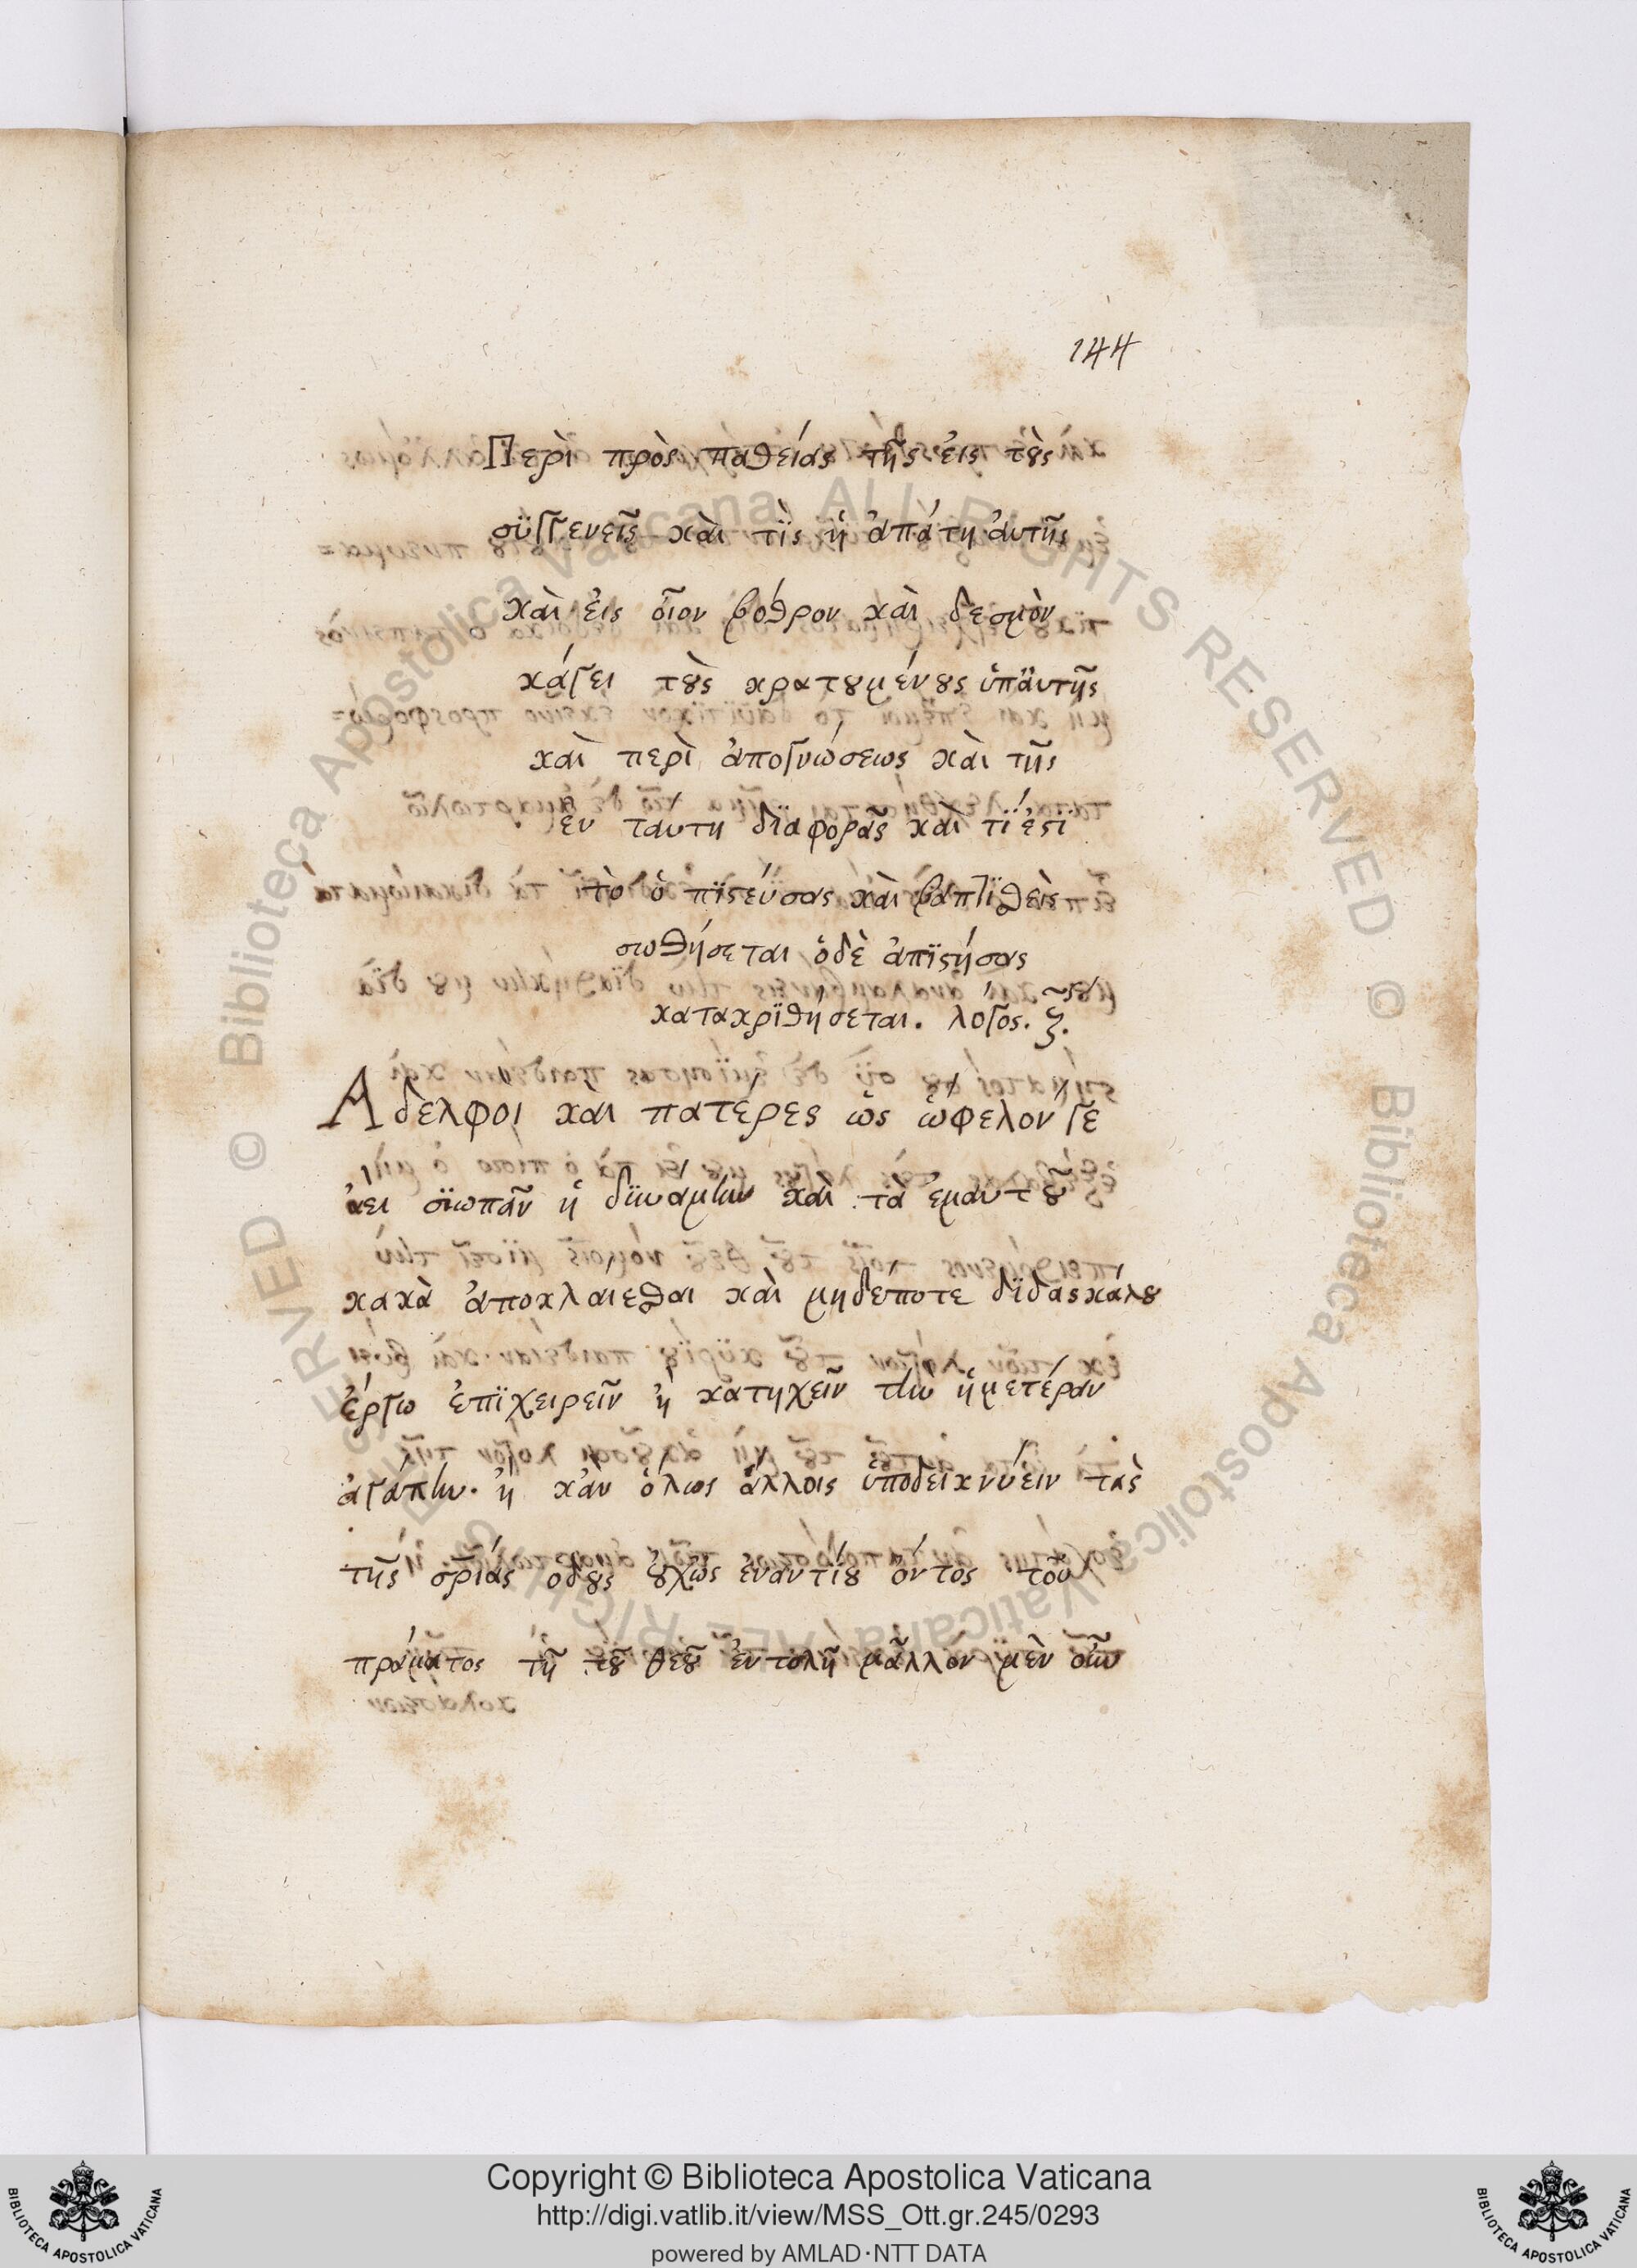 144
Περὶ πρὸς παθείας τῆς ἐις τȣ̀ς
σϋγγενεῖς καὶ τῒς ἡ ἀπάτη ἀυτῆς
καὶ ἐις οἷον βόθρον καὶ δεσμὸν
κάγει τȣ̀ς κρατȣμένȣς ὑπ' ἀυτῆς
καὶ περὶ ἀπογνώσεως καὶ τῆς
ἐν ταυτη δϊαφορᾶς καὶ τί ἐϛϊ
τὸ ὁ πϊϛεύσας καὶ βαπτϊθεὶς
σωθήσεται ὁδὲ ἀπϊϛήσας
κατακρϊθήσεται. λόγος. ζ.
Αδελφοι καὶ πατέρες ὡς ὠφελον γε
ἀει σϊωπᾶν ἠ δϋναμην καὶ τὰ ἐμαυτȣ̃
κακὰ ἀποκλαιεθαι καὶ μηδέποτε δϊδασκάλȣ
ἔργω ἐπϊχειρεῖν ἢ κατηχεῖν τὴν ἡμετέραν
ἀγάπην. ἢ κἀν ὁλως ἄλλοις ὑποδεικνύειν τὰς
τῆς σρίας οδȣς ȣχὡς ἐναντίȣ ὄντος τοῦ
πράματος τῆ τȣ̃ θεȣ̃ ἐντολῆ μᾶλλον μὲν οὖν
Copyright © Biblioteca Apostolica Vaticana
http://digi.vatlib.it/view/MSS_Ott.gr.245/0293
powered by AMLAD·NTT DATA
BIBLIOTECA APOSTOLICA VATICANA
BIBLIOTECA APOSTOLICA VATICANA
© Biblioteca Apostolica Vaticana ALL RIGHTS RESERVED © Biblioteca Apostolica Vaticana ALL RIGHTS RESERVED